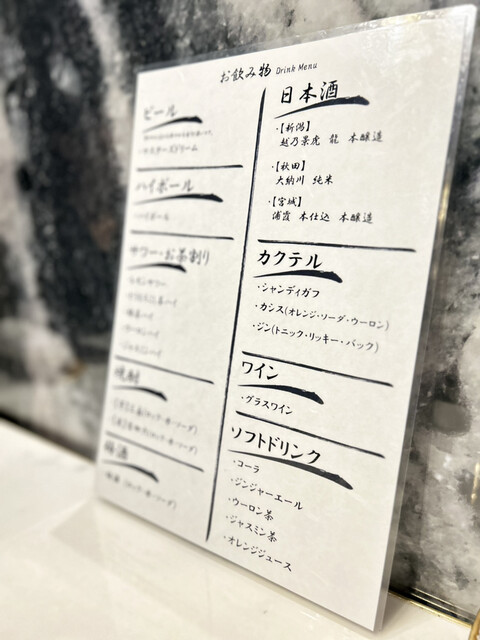 お飲み物 Drink Menu
ビール
ハイボール
・ハイボール
サワー・お茶割り
・レモンサワー
・ウーロンハイ
・ジャスミンハイ
焼酎
梅酒
日本酒
・【新潟】
越乃景虎 龍 本醸造
・【秋田】
大納川 純米
・【宮城】
浦霞 本仕込 本醸造
カクテル
・シャンディガフ
・カシス(オレンジ・ソーダ・ウーロン)
・ジン(トニック・リッキー・バック)
ワイン
・グラスワイン
ソフトドリンク
・コーラ
・ジンジャーエール
・ウーロン茶
・ジャスミン茶
・オレンジジュース